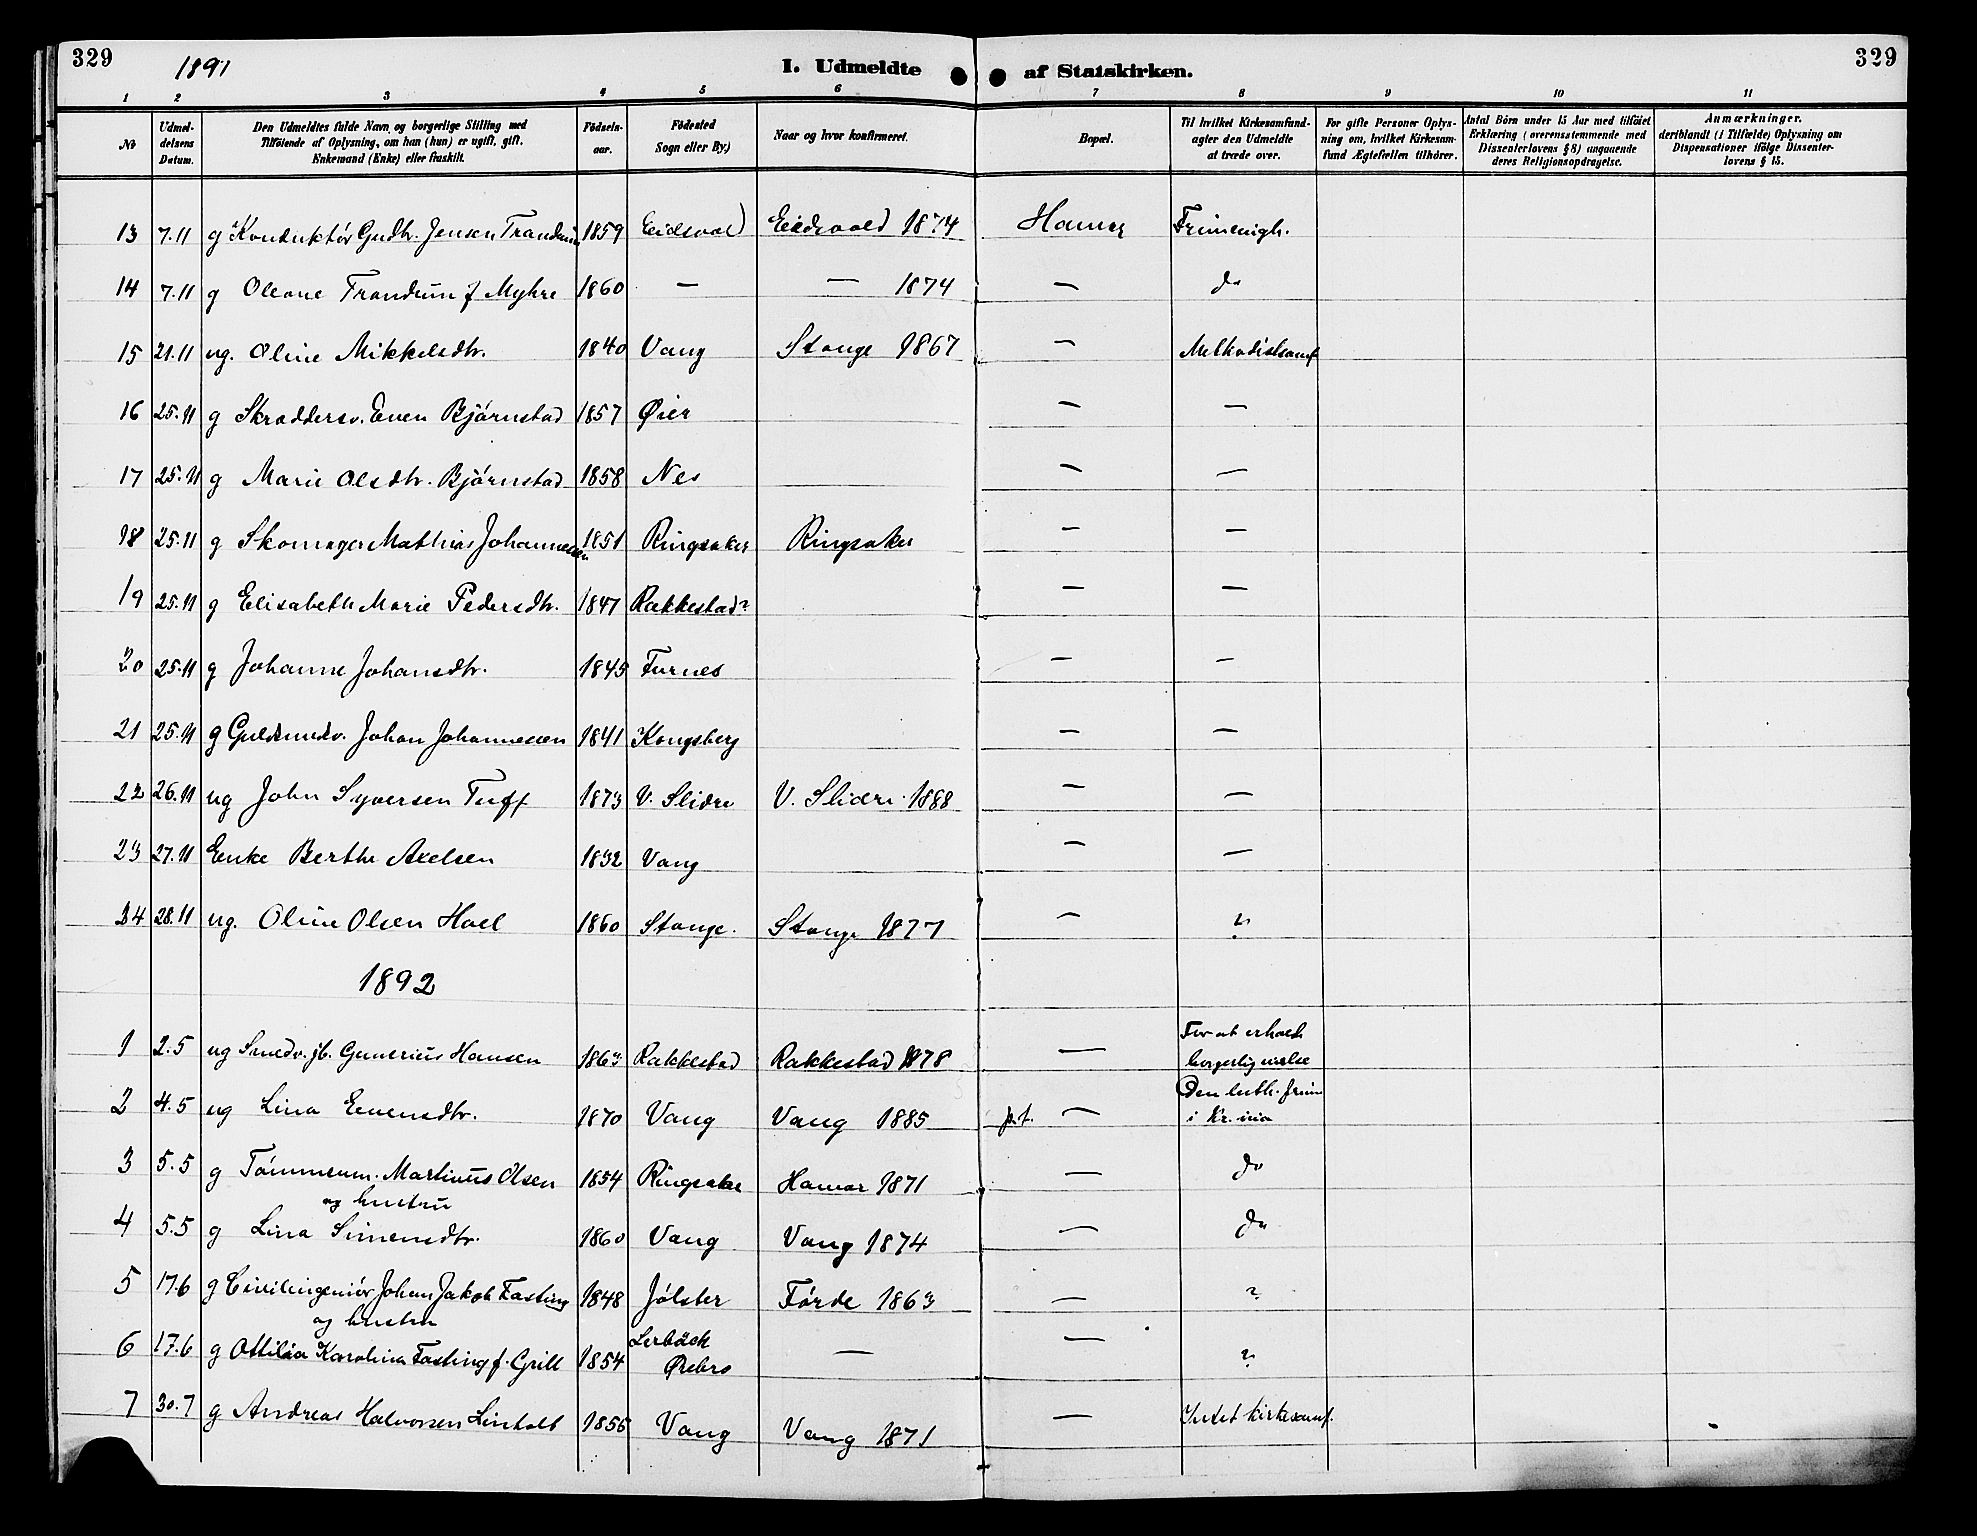 329
1891
I. Udmeldte af Statskirken.
329
1 2 3 4 5 6 7 8 9 10 11
№
Udmel-
delsens
Datum.
Den Udmeldtes fulde Navn og borgerlige Stilling med
Tilföiende af Oplysning, om han (hun) er ugift, gift,
Enkemand (Enke) eller fraskilt.
Födsels-
aar.
Födested
Sogn eller By.)
Naar og hvor konfirmeret.
Bopæl.
Til hvilket Kirkesamfund-
agter den Udmeldte
at træde over.
For gifte Personer Oplys-
ning om, hvilket Kirkesam-
fund Ægtefællen tilhörer.
Antal Börn under 15 Aar med tilföiet
Erklæring (overensstemmende med
Dissenterlovens § 8) angaaende
deres Religionsopdragelse.
Anmærkninger.
deriblandt (i Tilfælde) Oplysning om
Dispensationer ifölge Dissenter-
lovens § 15.
13 7.11 g Konduktør Gudbr. Jensen Trandum 1859 Eidsvold Eidsvold 1874 Hamar Frimenigh.
14 7.11 g Oleane Trandum f Myhre 1860 — — 1874 — do
15 21.11 ug. Oline Mikkelsdtr. 1840 Vang Stange 1867 — Methodistsamf
16 25.11 g Skræddersv. Even Bjørnstad 1857 Øier — —
17 25.11 g Marie Olsdtr. Bjørnstad 1858 Nes — —
18 25.11 g Skomager Mathias Johannessen 1851 Ringsaker Ringsaker — —
19 25.11 g Elisabeth Marie Pedersdtr. 1847 Rakkestad? — —
20 25.11 g Johanne Johansdtr. 1845 Furnes — —
21 25.11 g Guldsmedsv. Johan Johannessen 1841 Kongsberg — —
22 26.11 ug John Syversen Tuff 1873 V. Slidre V. Slidre 1888 — —
23 27.11 Enke Berthe Axelsen 1832 Vang — —
24 28.11 ug. Oline Olsen Hoel 1860 Stange. Stange 1877 — ?
1892
1 2.5 ug Smedv.jb. Gunerius Hansen 1863 Rakkestad Rakkestad 1878 — For at erholde
borgerlig vielse
2 4.5 ug Lina Evensdtr. 1870 Vang Vang 1885 p.t. — Den luth. frim
i Kr.ania
3 5.5 g Tømmerm. Martinus Olsen 1854 Ringsaker Hamar 1871 — do
og hustru
4 5.5 g Lina Simensdtr. 1860 Vang Vang 1874 — do
5 17.6 g Civilingeniør Johan Jakob Fasting 1848 Jølster Førde 1863 — ?
og hustru
6 17.6 g Ottilia Karolina Fasting f. Grill 1854 Lerbäck
Ørebro — — ?
7 30.7 g Andreas Halvorsen Lintolt 1856 Vang Vang 1871 — Intet kirkesamf.